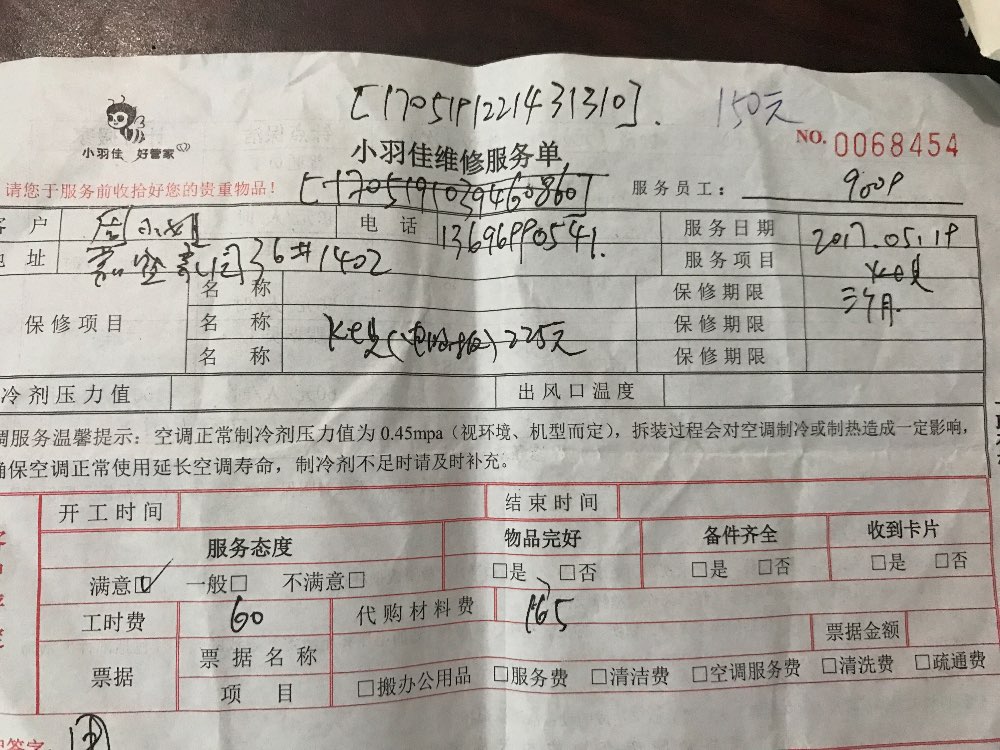 [170519122143​1310]. 150元
小羽佳 好管家
小羽佳维修服务单
NO. 0068454
请您于服务前收拾好您的贵重物品！
[170519103946​0860]
服务员工： 9009
客 户 周小姐 电 话 13696990541. 服务日期 2017.05.19
地 址 36#1402 服务项目
保修项目
名 称 保修期限 三个月
名 称 (电路板)225元 保修期限
名 称 保修期限
冷剂压力值 出风口温度
调服务温馨提示：空调正常制冷剂压力值为 0.45mpa（视环境、机型而定），拆装过程会对空调制冷或制热造成一定影响，
确保空调正常使用延长空调寿命，制冷剂不足时请及时补充。
开工时间 结束时间
服务态度 物品完好 备件齐全 收到卡片
满意☑ 一般□ 不满意□ □是 □否 □是 □否 □是 □否
工时费 60 代购材料费 165
票据金额
票据 票据名称
项 目 □搬办公用品 □服务费 □清洁费 □空调服务费 □清洗费 □疏通费
签字